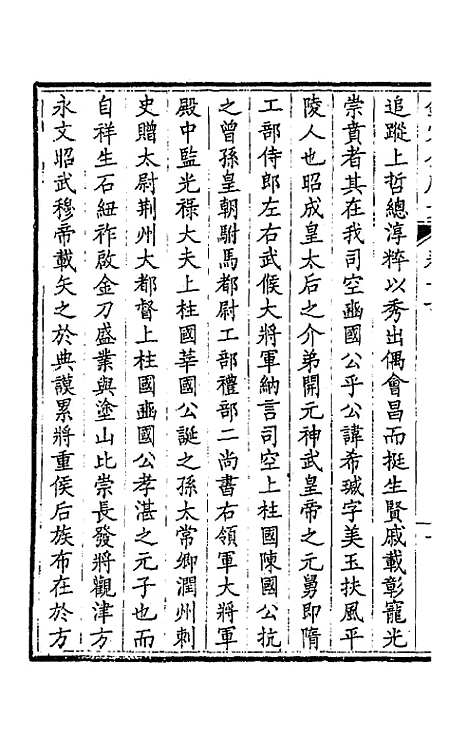 追蹤上哲總淳粹以秀出偶會昌而挺生賢戚載彰寵光
崇賁者其在我司空豳國公乎公諱希瑊字美玉扶風平
陵人也昭成皇太后之介弟開元神武皇帝之元舅即隋
工部侍郎左右武候大將軍納言司空上柱國陳國公抗
之曾孫皇朝駙馬都尉工部禮部二尚書右領軍大將軍
殿中監光祿大夫上柱國莘國公誕之孫太常卿潤州刺
史贈太尉荆州大都督上柱國豳國公孝湛之元子也而
自祥生石紐祚啟金刀盛業與塗山比崇長發將觀津方
永文昭武穆帝載矢之於典謨累將重侯后族布在於方